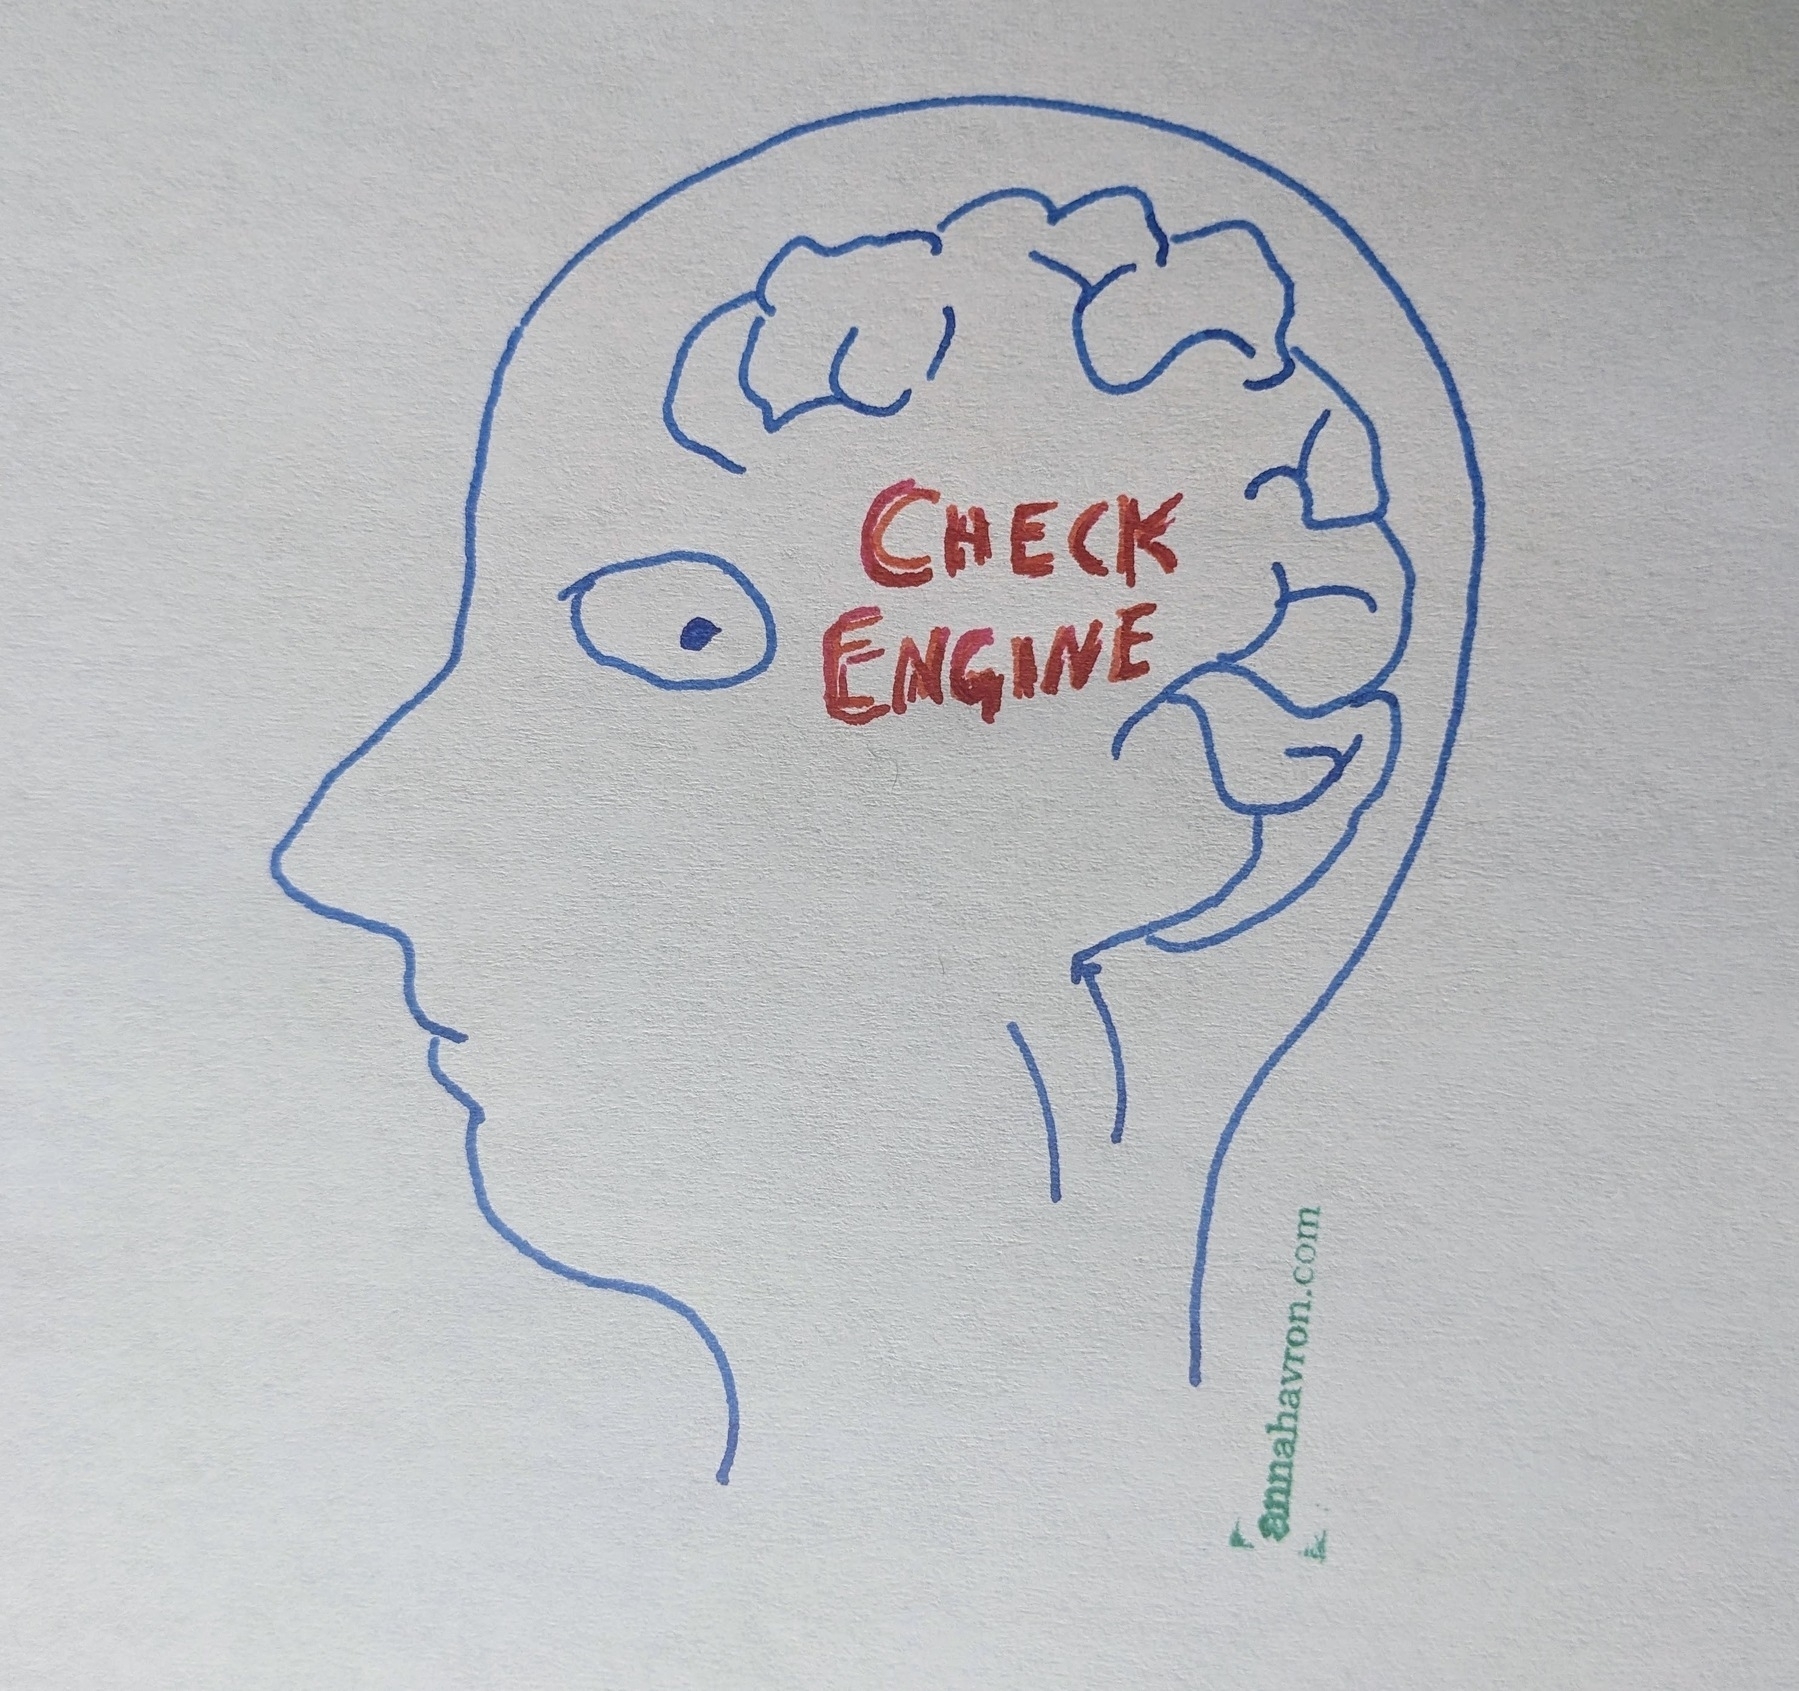 CHECK
ENGINE
annahavron.com